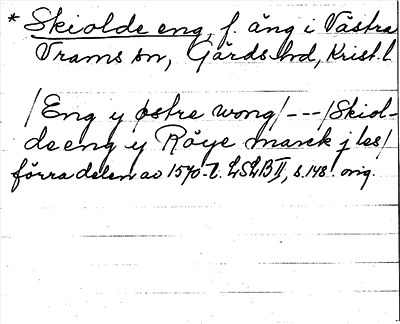 * Skiolde eng, f. äng i Västra
Vrams sn, Gärds hd, Krist. l
/Eng y østre wong/---/Skiol-
de eng y Röye marck j les/
förra delen av 1570-t. LSLB II, s. 148 orig.